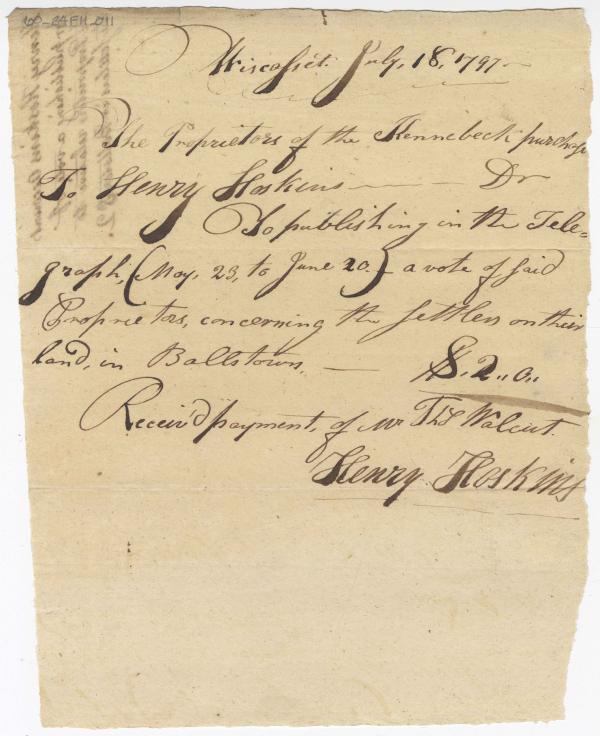 60-24FH-011
Wiscasset. July, 18, 1797.
The Proprietors of the Kennebeck purchase
To Henry Hoskins — — Dr
To publishing in the Tele=
graph, (May, 23, to June 20.) a vote of said
Proprietors, concerning the settlers on their
land, in Ballstown. — $. 2,,0,,
Receiv'd payment, of Mr Ths Walcut.
Henry Hoskins